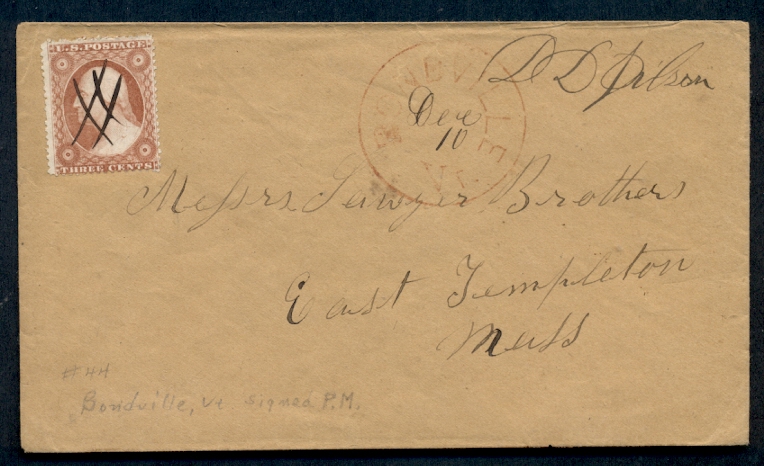 U.S. POSTAGE
THREE CENTS
BONDVILLE
Vt
D D Wilson
Dec
10
Messrs Sawyer Brothers
East Templeton
Mass
#44
Bondville, Vt signed P.M.